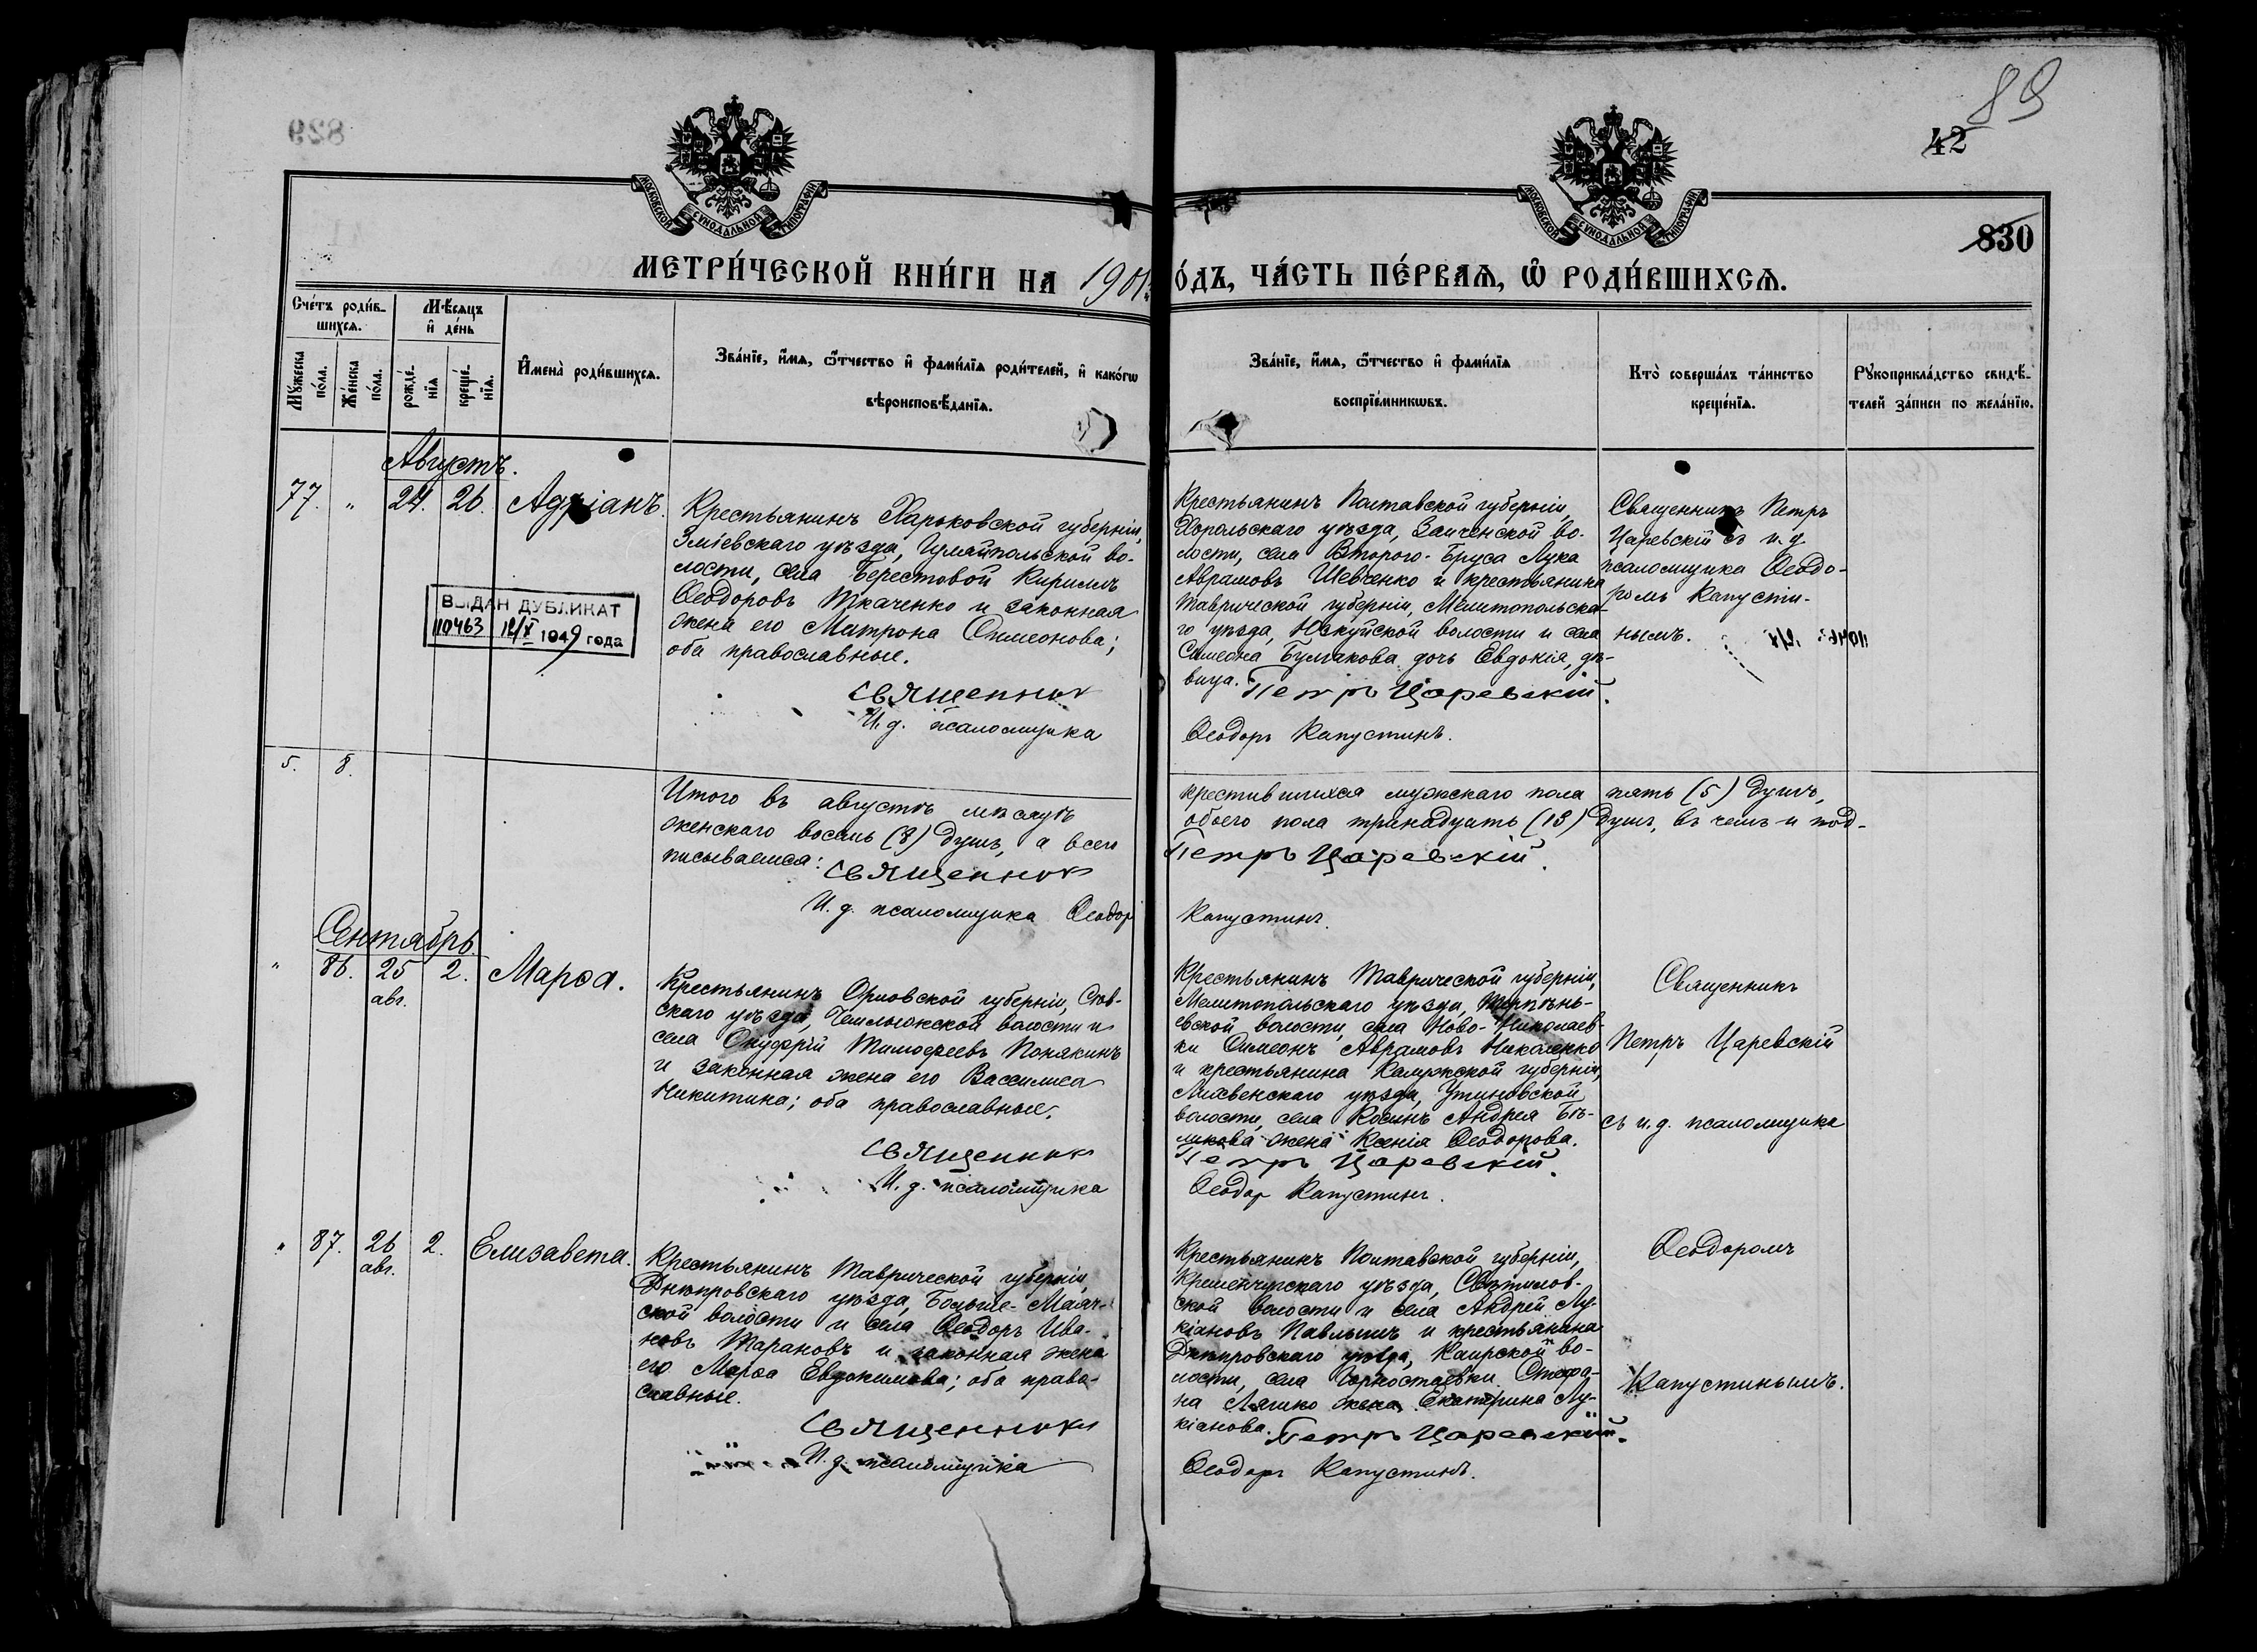 829
89
42
830
МОСКОВСКОЙ СѴНОДАЛЬНОЙ ТИПОГРАФІИ
МОСКОВСКОЙ СѴНОДАЛЬНОЙ ТИПОГРАФІИ
МЕТРИ́ЧЕСКОЙ КНИ́ГИ НА 1901
О́ДЪ, ЧА́СТЬ ПЕ́РВАѦ, Ѡ҆ РОДИ́ВШИХСѦ.
Сче́тъ роди́в-
шихсѧ.
Мꙋжеска
по́ла.
Же́нска
по́ла.
Мѣ́сѧцъ
и҆ де́нь
рожде́-
нїѧ
креще́-
нїѧ.
И҆мена̀ роди́вшихсѧ.
Зва́нїе, и҆́мѧ, ѻ҆́тчество и҆ фами́лїѧ роди́телей, и҆ како́гѡ
вѣроисповѣ́данїѧ.
Зва́нїе, и҆́мѧ, ѻ҆́тчество и҆ фами́лїѧ
воспрїе́мникѡвъ.
Кто̀ соверша́лъ та́инство
креще́нїѧ.
Рꙋкоприкла́дство свидѣ́-
телей за́писи по жела́нїю.
Августъ.
77. " 24. 26. Адріанъ.
Крестьянинъ Харьковской губерніи,
Зміевскаго уѣзда, Гулайпольской во-
лости, села Берестовой Кириллъ
Ѳеодоровъ Ткаченко и законная
жена его Матрона Симеонова;
оба православные.
Священник
И. д. псаломщика
ВЫДАН ДУБЛИКАТ
110463 12/X 1949 года
Крестьянинъ Полтавской губерніи,
Хорольскаго уѣзда, Заиченской во-
лости, села Второго-Бруса Лука
Аврамовъ Шевченко и крестьянина
Таврической губерніи, Мелитопольска-
го уѣзда, Юзкуйской волости и села
Симеона Булгакова дочь Евдокія, дѣ-
вица. Петръ Царевскій.
Ѳеодоръ Капустинъ.
Священникъ Петръ
Царевскій съ и. д.
псаломщика Ѳеодо-
ромъ Капусти-
нымъ.
5. 8.
Итого въ августѣ мѣсяцѣ
женскаго восемь (8) душъ, а всего
писываемся: Священник
И. д. псаломщика Ѳеодор
крестившихся мужскаго пола пять (5) душъ,
обоего пола тринадцать (13) душъ, въ чемъ и под-
Петръ Царевскій.
Капустинъ.
Сентябрь.
" 86. 25 авг. 2. Марѳа.
Крестьянинъ Орловской губерніи, Сѣв-
скаго уѣзда, Чемлыжской волости и
села Онуфрій Тимоѳеевъ Понякинъ
и законная жена его Вассилиса
Никитина; оба православные.
Священник
И. д. псаломщика
Крестьянинъ Таврической губерніи,
Мелитопольскаго уѣзда, Терпѣнь-
евской волости, села Ново-Николаев-
ки Симеонъ Аврамовъ Николенко
и крестьянина Калужской губерніи,
Лихвенскаго уѣзда,
волости, села Андрея Бѣ-
ликова жена Ксенія Ѳеодорова.
Петръ Царевскій.
Ѳеодор Капустинъ.
Священникъ
Петръ Царевскій
съ и. д. псаломщика
" 87. 26 авг. 2. Елизавета.
Крестьянинъ Таврической губерніи,
Днѣпровскаго уѣзда, Больше-Маяч-
ской волости и села Ѳеодоръ Ива-
новъ Тарановъ и законная жена
его Марѳа Евдокимова; оба право-
славные.
Священник
И. д. псаломщика
Крестьянинъ Полтавской губерніи,
Кременчугскаго уѣзда,
ской волости и села Андрей Лу-
кіановъ Павлышъ и крестьянина
Днѣпровскаго уѣзда, Каирской во-
лости, села Горностаевки Стефа-
на Ляшко жена Екатерина Лу-
кіанова. Петръ Царевскій.
Ѳеодоръ Капустинъ.
Ѳеодоромъ
Капустинымъ.